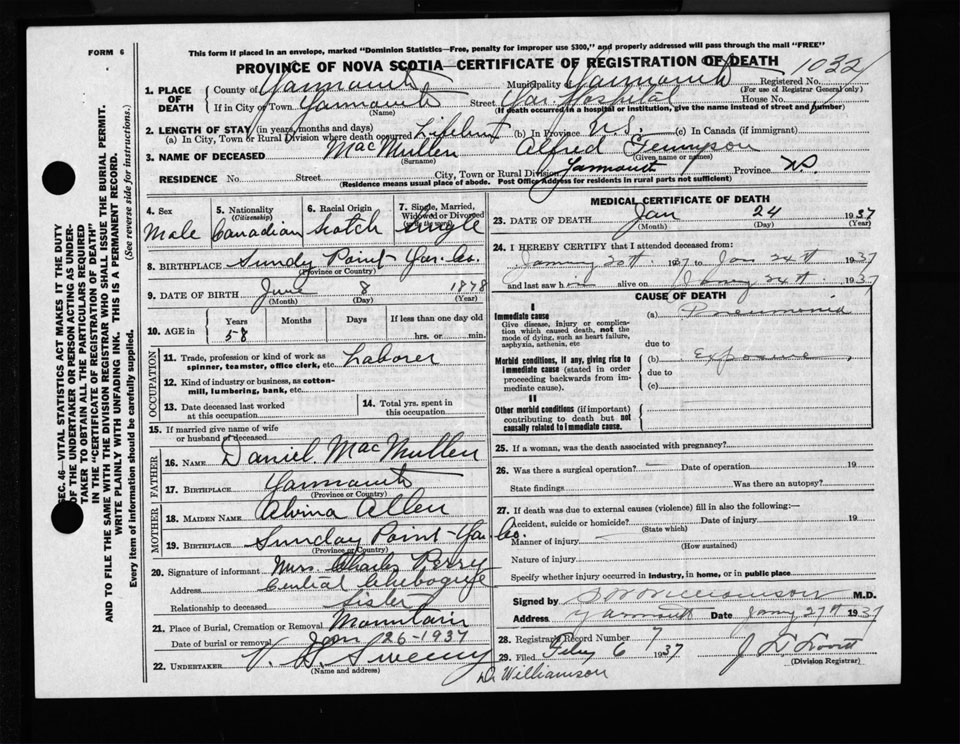 FORM 6
This form if placed in an envelope, marked "Dominion Statistics—Free, penalty for improper use $300," and properly addressed will pass through the mail "FREE"
PROVINCE OF NOVA SCOTIA—CERTIFICATE OF REGISTRATION OF DEATH
1032
1. PLACE OF DEATH County of Yarmouth Municipality Yarmouth Registered No. (For use of Registrar General only)
If in City or Town Yarmouth (Name) Street Yar. Hospital House No.
(If death occurred in a hospital or institution, give the name instead of street and number)
2. LENGTH OF STAY (in years, months and days)
(a) In City, Town or Rural Division where death occurred Lifetime (b) In Province N.S. (c) In Canada (if immigrant)
3. NAME OF DECEASED MacMullen (Surname) Alfred Tennyson (Given name or names)
RESIDENCE No. Street City, Town or Rural Division Yarmouth Province N.S.
(Residence means usual place of abode. Post Office Address for residents in rural parts not sufficient)
4. Sex Male
5. Nationality (Citizenship) Canadian
6. Racial Origin Scotch
7. Single, Married, Widowed or Divorced Single
8. BIRTHPLACE Sunday Point Yar. Co.
(Province or Country)
9. DATE OF BIRTH June (Month) 8 (Day) 1878 (Year)
10. AGE in Years 58 Months Days If less than one day old hrs. or min.
OCCUPATION
11. Trade, profession or kind of work as spinner, teamster, office clerk, etc. Laborer
12. Kind of industry or business, as cotton-mill, lumbering, bank, etc.
13. Date deceased last worked at this occupation
14. Total yrs. spent in this occupation
15. If married give name of wife or husband of deceased
FATHER
16. NAME Daniel MacMullen
17. BIRTHPLACE Yarmouth
(Province or Country)
MOTHER
18. MAIDEN NAME Alvina Allen
19. BIRTHPLACE Sunday Point Yar. Co.
(Province or Country)
20. Signature of informant Mrs. Charles Perry
Address Central Chebogue
Relationship to deceased Sister
21. Place of Burial, Cremation or Removal Mountain
Date of burial or removal Jan 26-1937
22. UNDERTAKER V. S. Sweeny
(Name and address)
D. Williamson
MEDICAL CERTIFICATE OF DEATH
23. DATE OF DEATH Jan (Month) 24 (Day) 1937 (Year)
24. I HEREBY CERTIFY that I attended deceased from:
January 20th 1937 to Jan 24th 1937
and last saw him alive on 24th 1937
CAUSE OF DEATH
I
Immediate cause
Give disease, injury or complication which caused death, not the mode of dying, such as heart failure, asphyxia, asthenia, etc
(a) Pneumonia
due to
Morbid conditions, if any, giving rise to immediate cause (stated in order proceeding backwards from immediate cause).
(b) Exposure
due to
(c)
II
Other morbid conditions (if important) contributing to death but not causally related to immediate cause.
25. If a woman, was the death associated with pregnancy?
26. Was there a surgical operation? — Date of operation 19
State findings Was there an autopsy?
27. If death was due to external causes (violence) fill in also the following:—
Accident, suicide or homicide? (State which) Date of injury 19
Manner of injury
(How sustained)
Nature of injury
Specify whether injury occurred in industry, in home, or in public place
Signed by Williamson M.D.
Address Yarmouth Date Jany 27th 1937
28. Registrar's Record Number 7
29. Filed Feby 6 1937
(Division Registrar)
SEC. 46—VITAL STATISTICS ACT MAKES IT THE DUTY
OF THE UNDERTAKER OR PERSON ACTING AS UNDER-
TAKER TO OBTAIN ALL THE PARTICULARS REQUIRED
IN THE "CERTIFICATE OF REGISTRATION OF DEATH"
AND TO FILE THE SAME WITH THE DIVISION REGISTRAR WHO SHALL ISSUE THE BURIAL PERMIT.
WRITE PLAINLY WITH UNFADING INK. THIS IS A PERMANENT RECORD.
Every item of information should be carefully supplied. (See reverse side for instructions.)